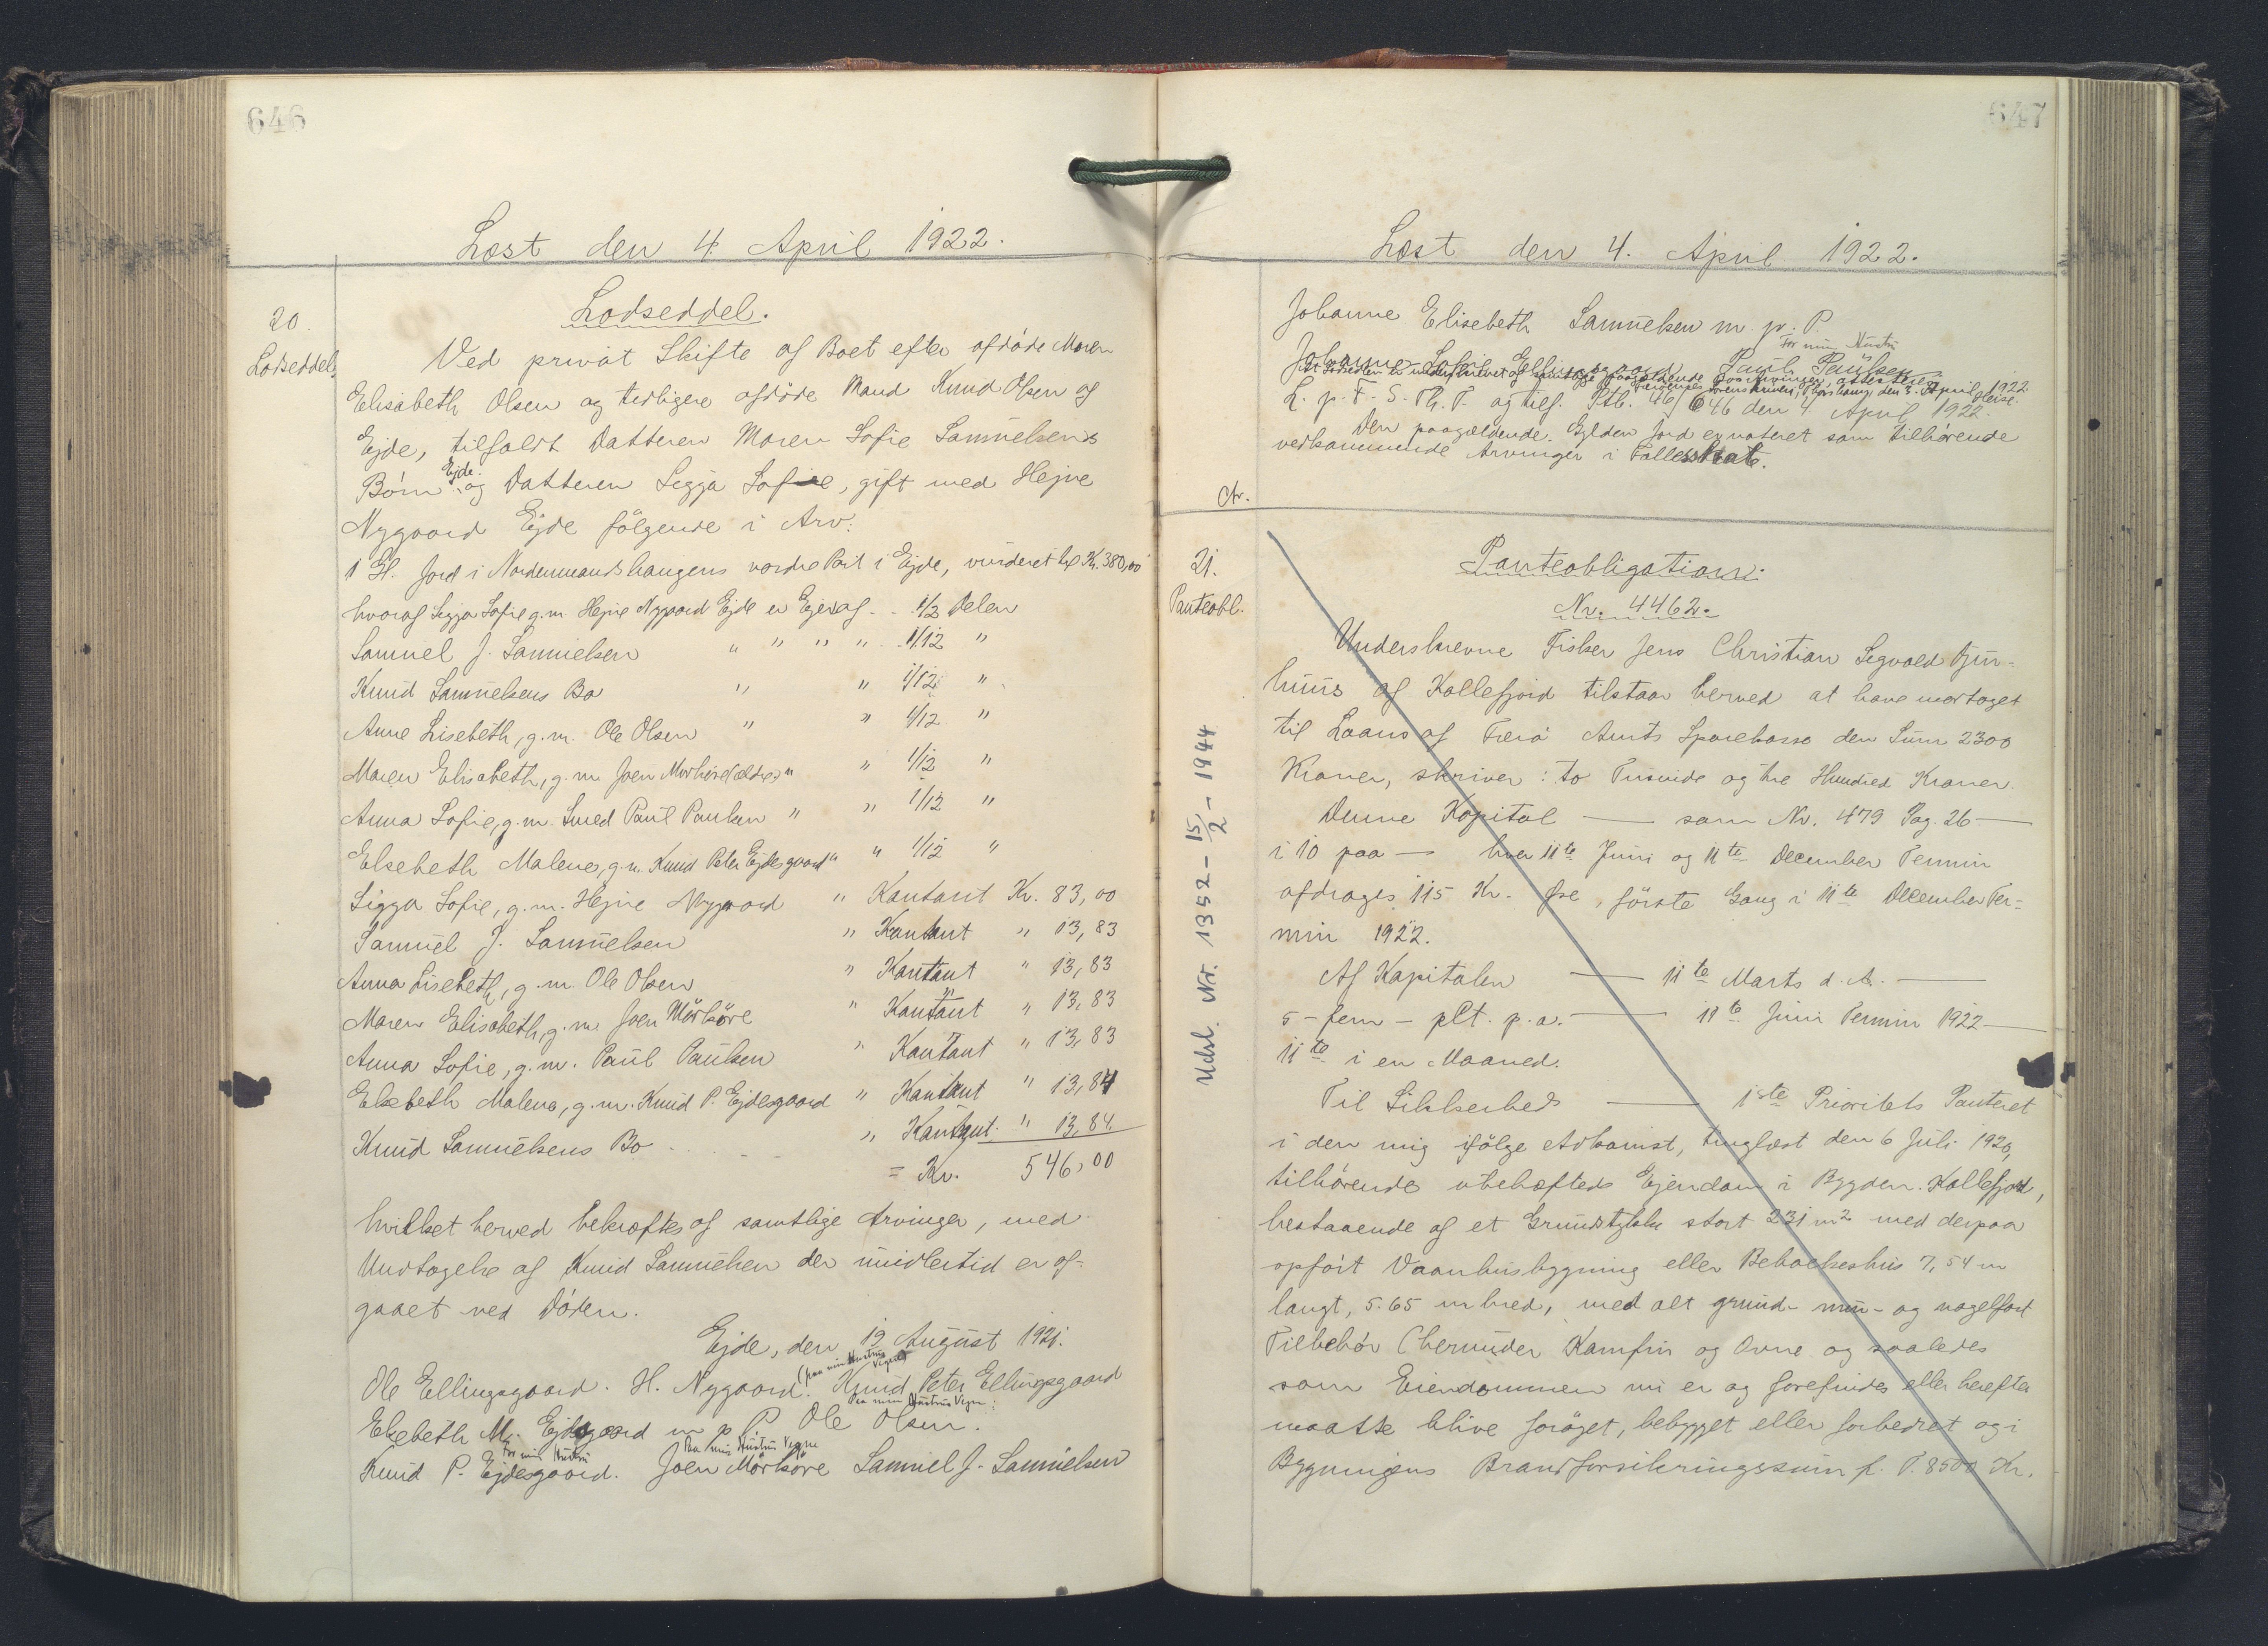 646
Læst den 4. April 1922.
20.
Lodseddel.
Lodseddel.
Ved privat Skifte af Boet efter afdöde Maren
Elisabeth Olsen og tidligere afdöde Mand Knud Olsen af
Ejde, tilfaldt Datteren Maren Sofie Samuelsens
Börn Ejde. og Datteren Siggja Sofie, gift med Hejne
Nygaard Ejde fölgende i Arv:
1 Gl. Jord i Nordenmandshaugens nordre Part i Ejde, vurderet til Kr. 380,00
hvoraf Siggja Sofie g.m. Hejne Nygaard Ejde er Ejer af .. 1/2 Delen
Samuel J. Samuelsen " " " " . 1/12 "
Knud Samuelsens Bo " " 1/12 "
Anne Lisebeth, g.m. Ole Olsen " " 1/12 "
Maren Elisabeth, g.m. Joen Mörköre (ældre) " " 1/12 "
Anna Sofie, g.m. Smed Paul Paulsen " " 1/12 "
Elsebeth Malene, g.m. Knud Peter Ejdesgaard " " 1/12 "
Sigga Sofie, g.m. Hejne Nygaard " Kontant Kr. 83,00
Samuel J. Samuelsen " Kontant " 13,83
Anna Lisebeth, g.m. Ole Olsen " Kontant " 13,83
Maren Elisabeth, g.m. Joen Mörköre " Kontant " 13,83
Anna Sofie, g.m. Paul Paulsen " Kontant " 13,83
Elsebeth Malena, g.m. Knud P. Ejdesgaard " Kontant " 13,84
Knud Samuelsens Bo . . . . " Kontant. " 13,84.
= Kr. 546,00
hvilket herved bekræftes af samtlige Arvinger, med
Undtagelse af Knud Samuelsen der imidlertid er af-
gaaet ved Döden.
Ejde, den 19 August 1921.
(paa min Hustrus Vegne)
Ole Ellingsgaard. H. Nygaard. Knud Peter Ellingsgaard
Paa min Hustrus Vegne:
Elsebeth M. Ejdesgaard m. p. P. Ole Olsen.
For min Hustru Paa min Hustrus Vegne
Knud P. Ejdesgaard. Joen Mörköre Samuel J. Samuelsen
647
Læst den 4. April 1922.
Johanne Elisebeth Samuelsen m. p. P.
For min Hustru
Johanne Sofie Ellingsgaard Paul Paulsen.
L. p. F. S. Th. T. og tilf. Ptb. 46/646 den 4 April 1922.
Den paagældende. Gylden Jord er noteret som tilhörende
vedkommende Arvinger i Fællesskab.
Ct.
21.
Panteobl.
Udsl. Nr. 1352 - 15/2 - 1944
Panteobligation:
Nr. 4462.
Underskrevne Fisker Jens Christian Segvald Djur-
huus af Kollefjord tilstaar herved at have modtaget
til Laans af Færö Amts Sparekasse den Sum 2300
Kroner, skriver: to Tusinde og tre Hundred Kroner.
Denne Kapital — som Nr. 479 Pag. 26 —
i 10 paa — hver 11te Juni og 11te December Termin
afdrages 115 Kr. Øre, förste Gang i 11te December Ter-
min 1922.
Af Kapitalen — 11te Marts d. A. —
5 - fem - pCt. p. a. — 11te Juni Termin 1922 —
11te i en Maaned.
Til Sikkerhed — 1ste Prioritets Panteret
i den mig ifölge Adkomst, tinglæst den 6 Juli 1920,
tilhörende ubehæftede Ejendom i Bygden Kollefjord,
bestaaende af et Grundstykke stort 231 m² med derpaa
opfört Vaanhusbygning eller Beboelseshus 7,54 m
langt, 5.65 m bred, med alt grund- mur- og nagelfast
Tilbehör (herunder Komfur og Ovne og saaledes
som Eiendommen nu er og forefindes eller herefter
maatte blive foröget, bebygget eller forbedret og i
Bygningens Brandforsikringssum f. T. 8500 Kr.